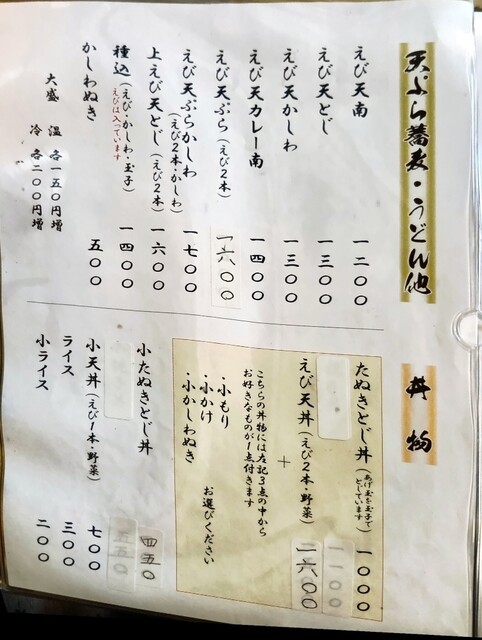 天ぷら蕎麦・うどん他
えび天南 一二〇〇
えび天とじ 一三〇〇
えび天かしわ 一三〇〇
えび天カレー南 一四〇〇
えび天ぷら(えび2本) 一六〇〇
えび天ぷらかしわ 一七〇〇
(えび2本・かしわ)
上えび天とじ(えび2本) 一六〇〇
種込(えび・かしわ・玉子) 一四〇〇
えびは入っています
かしわぬき 五〇〇
大盛 温 各一五〇円増
冷 各二〇〇円増
丼物
たぬきとじ丼(あげ玉を玉子でとじています) 一〇〇〇
一一〇〇
えび天丼(えび2本・野菜) 一六〇〇
+
こちらの丼物には左記3点の中から
お好きなものが1点付きます
・小もり
・小かけ お選びください
・小かしわぬき
小たぬきとじ丼 四五〇
五五〇
小天丼(えび1本・野菜) 七〇〇
ライス 三〇〇
小ライス 二〇〇